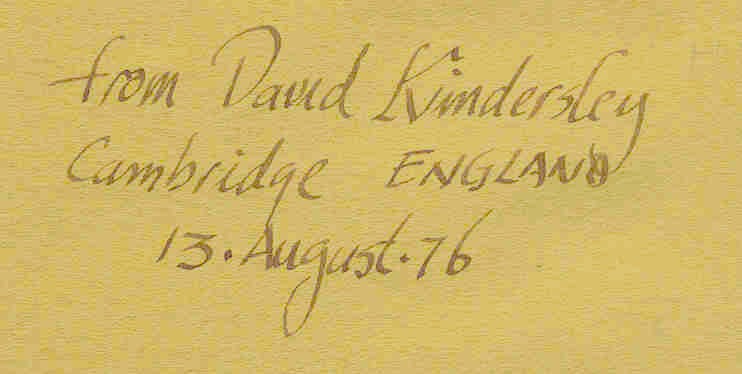 from David Kindersley
Cambridge ENGLAND
13. August. 76